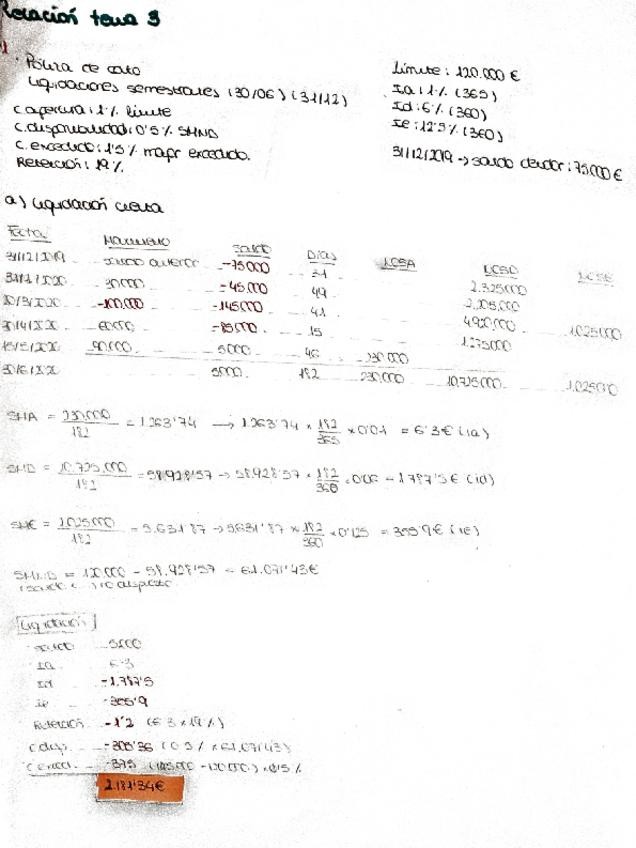 Relación tema 3
1
Póliza de cdto
Liquidaciones semestrales (30/06) (31/12)
C. apertura: 1% límite
C. disponibilidad: 0'5% SMND
C. excedido: 1'5% mayor excedido.
Retención: 19%
Límite: 120.000 €
Ia: 1% (365)
Id: 6% (360)
Ie: 12'5% (360)
31/12/2019 → saldo deudor: 75.000 €
a) Liquidación cuenta
Fecha Movimiento Saldo Días NCSA NCSD NCSE
31/12/2019 Saldo anterior -75.000 31 2.325.000
31/1/2020 30.000 -45.000 49 2.205.000
20/3/2020 -100.000 -145.000 41 4.920.000 1.025.000
30/4/2020 60.000 -85.000 15 1.275.000
15/5/2020 90.000 5000 46 230.000
30/6/2020 5000 182 230.000 10.725.000 1.025.000
SMA = 230.000 / 182 = 1.263'74 → 1.263'74 × 182/365 × 0'01 = 6'3 € (ia)
SMD = 10.725.000 / 182 = 58.928'57 → 58.928'57 × 182/360 × 0'06 = 1.787'5 € (id)
SME = 1.025.000 / 182 = 5.631'87 → 5631'87 × 182/360 × 0'125 = 355'9 € (ie)
SMND = 120.000 - 58.928'57 = 61.071'43 €
Liquidación
Saldo 5000
Ia 6'3
Id -1.787'5
ie -355'9
Retención -1'2 (6'3 × 19%)
C. disp. -305'36 (0'5% × 61.071'43)
C. exced. -375 (145.000 - 120.000) × 1'5%
2.181'34 €